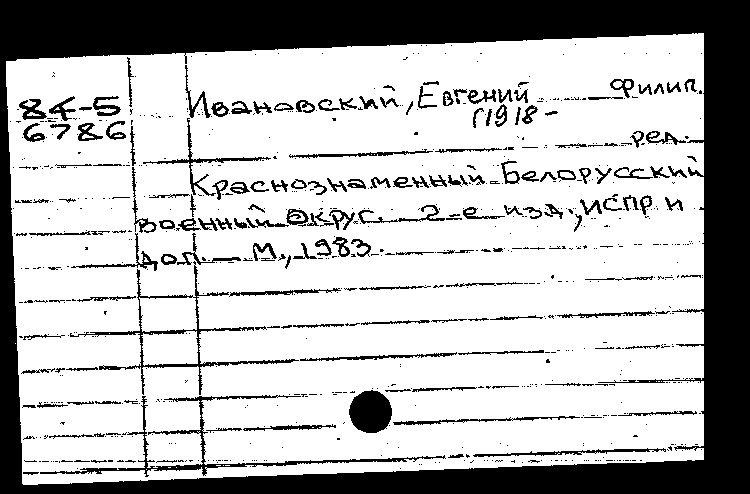 84-5
6786
Ивановский, Евгений Филип.
(1918-
ред.
Краснознаменный Белорусский
военный округ. 2-е изд., испр и
доп. — М., 1983.